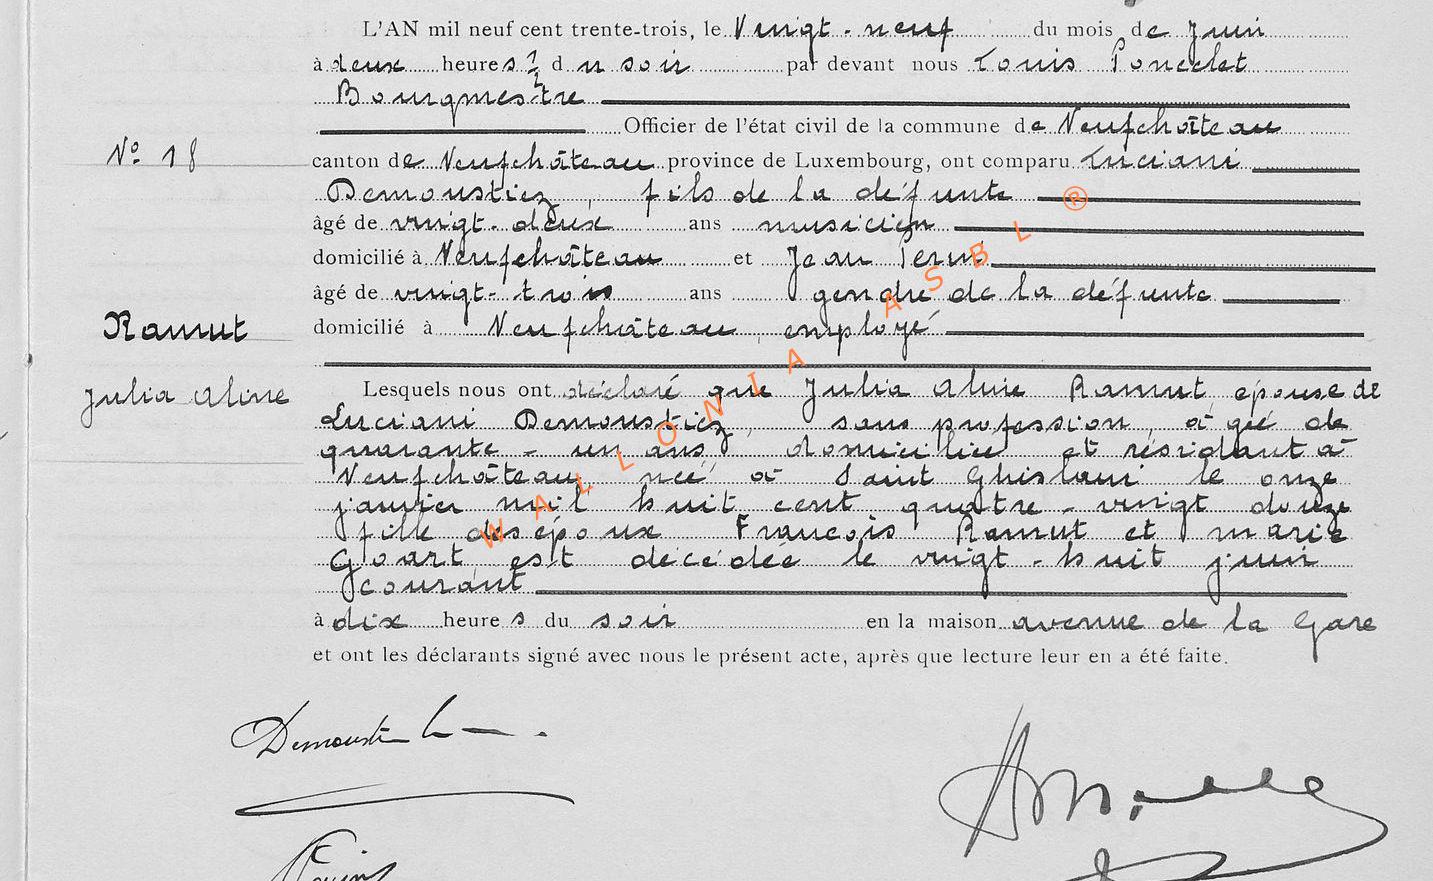 L'AN mil neuf cent trente-trois, le Vingt-neuf du mois de Juin
à deux heures ½ du soir par devant nous Louis Poncelet
Bourgmestre
Officier de l'état civil de la commune de Neufchâteau
N° 18
canton de Neufchâteau province de Luxembourg, ont comparu Lucien
Demoustiez, fils de la défunte
âgé de vingt-deux ans musicien
domicilié à Neufchâteau et Jean
âgé de vingt-trois ans gendre de la défunte
Ramut
domicilié à Neufchâteau, employé
Julia Aline
Lesquels nous ont déclaré que Julia Aline Ramut, épouse de
Lucien Demoustiez, sans profession, âgé de
quarante-un ans domiciliée et résidant à
Neufchâteau, née à Saint Ghislain le onze
janvier mil huit cent quatre-vingt douze
fille des époux François Ramut et Marie
Goart, est décédée le vingt-huit juin
courant
à dix heures du soir en la maison avenue de la Gare
et ont les déclarants signé avec nous le présent acte, après que lecture leur en a été faite.
WALLONIA ASBL ®